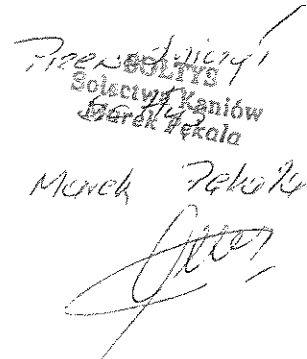 Przewodniczył
SOŁTYS
Sołectwa Kaniów
Marek Pękala
Marek Pękala